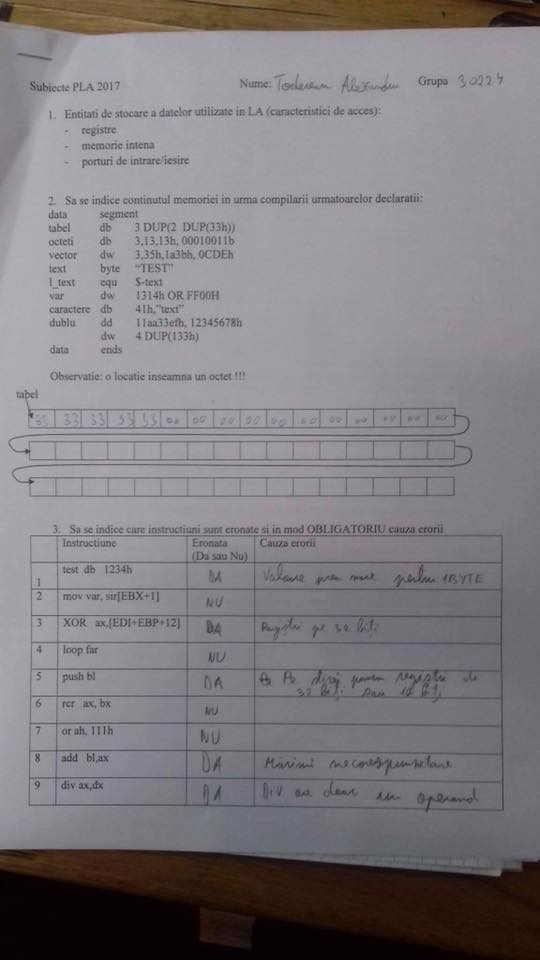 Subiecte PLA 2017 Nume: Alexandru Grupa 30224
1. Entitati de stocare a datelor utilizate in LA (caracteristici de acces):
- registre
- memorie intena
- porturi de intrare/iesire
2. Sa se indice continutul memoriei in urma compilarii urmatoarelor declaratii:
data segment
tabel db 3 DUP(2 DUP(33h))
octeti db 3,13,13h, 00010011b
vector dw 3,35h,1a3bh, 0CDEh
text byte “TEST”
l_text equ $-text
var dw 1314h OR FF00H
caractere db 41h,”text”
dublu dd 11aa33efh, 12345678h
dw 4 DUP(133h)
data ends
Observatie: o locatie inseamna un octet !!!
tabel
33 33 33 33 33 00 00 00 00 00 00 00 00 00 00 00
3. Sa se indice care instructiuni sunt eronate si in mod OBLIGATORIU cauza erorii
Instructiune Eronata Cauza erorii
(Da sau Nu)
1 test db 1234h DA Valoare prea mare pentru 1BYTE
2 mov var, sir[EBX+1] NU
3 XOR ax,[EDI+EBP+12] DA Regiștri pe 32 biți
4 loop far NU
5 push bl DA Pe punem regiștri de
32 biți sau 16 biți
6 rcr ax, bx NU
7 or ah, 111h NU
8 add bl,ax DA Mărimi necorespunzătoare
9 div ax,dx DA DIV are doar un operand